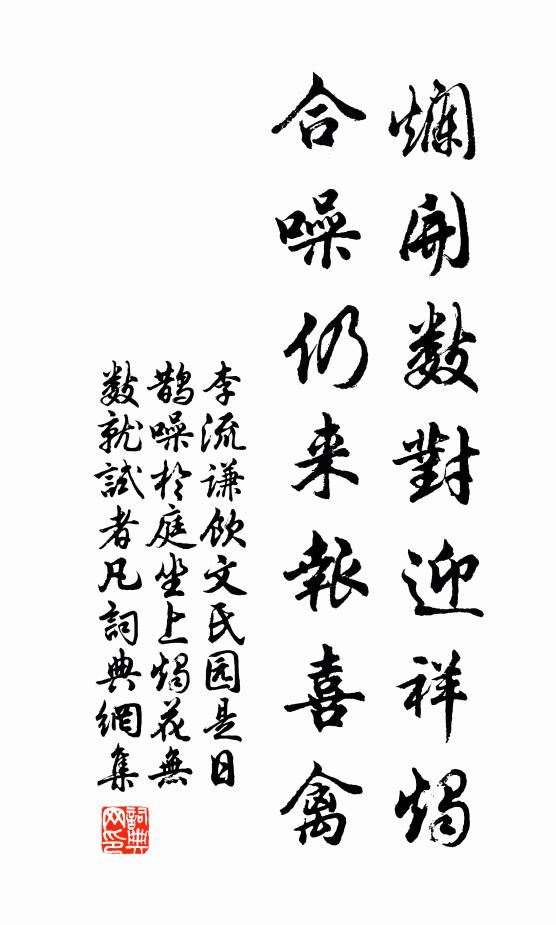 爛開數對迎祥燭
合噪仍来報喜禽
李流谦飲文氏园是日
鵲噪於庭坐上燭花無
數就試者凡詞典網集
詞典网印